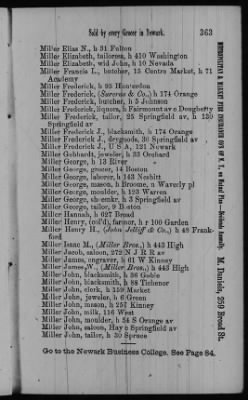 Sold by every Grocer in Newark. 363
Miller Elias N., h 31 Fulton
Miller Elizabeth, tailoress, h 410 Washington
Miller Elizabeth, wid John, h 10 Nevada
Miller Francis L., butcher, 13 Centre Market, h 71
Academy
Miller Frederick, h 95 Hunterdon
Miller Frederick, & Co.,) h 174 Orange
Miller Frederick, butcher, h 5 Johnson
Miller Frederick, h Fairmount av c Dougherty
Miller Frederick, tailor, 25 Springfield av, h 130
Springfield av
Miller Frederick J., blacksmith, h 174 Orange
Miller Frederick J., drygoods, 30 Springfield av
Miller Frederick J., U S A, 121 Newark
Miller Gebhardt, jeweler, h 33 Orchard
Miller George, h 13 River
Miller George, grocer, 14 Boston
Miller George, laborer, h 143 Nesbitt
Miller George, mason, h Broome, n Waverly pl
Miller George, moulder, h 123 Warren
Miller George, shoemkr, h 3 Springfield av
Miller George, tailor, 9 Boston
Miller Hannah, h 627 Broad
Miller Henry, (col'd), farmer, h r 100 Garden
Miller Henry H., (John Jelliff & Co.,) h 45 Frank-
ford
Miller Isaac M., (Miller Bros.,) h 443 High
Miller Jacob, saloon, 272 N J R R av
Miller James, engraver, h 61 W Kinney
Miller James W., (Miller Bros.,) h 443 High
Miller John, blacksmith, h 36 Goble
Miller John, blacksmith, h 88 Tichenor
Miller John, clerk, h 159 Market
Miller John, jeweler, h 6 Green
Miller John, mason, h 257 Kinney
Miller John, milk, 116 West
Miller John, moulder, h 54 S Orange av
Miller John, saloon, Hay c Springfield av
Miller John, tailor, h 30 Spruce
Go to the Newark Business College. See Page 84.
M. Daniels, 259 Broad St.